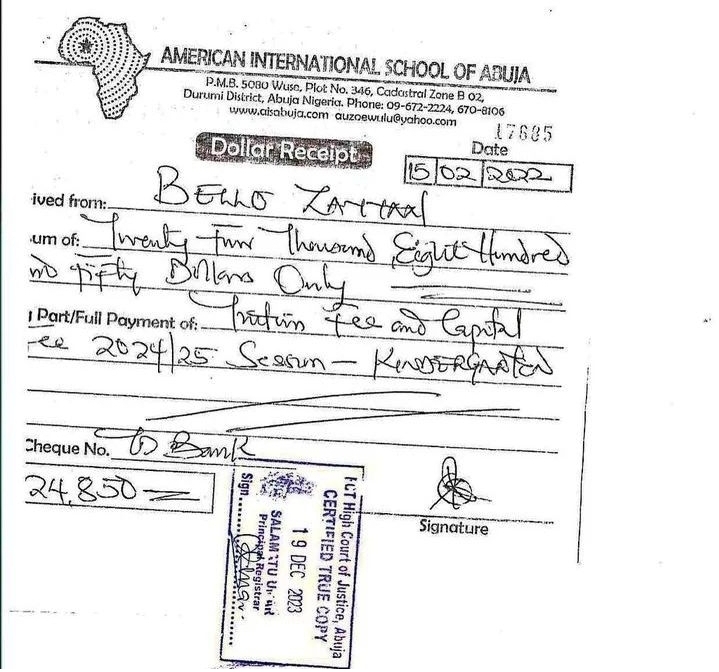 AMERICAN INTERNATIONAL SCHOOL OF ABUJA
P.M.B. 5080 Wuse, Plot No. 346, Cadastral Zone B 02,
Durumi District, Abuja Nigeria. Phone: 09-672-2224, 670-8106
www.aisabuja.com auzoewulu@yahoo.com
17685
Dollar Receipt
Date
15 02 2022
ived from: BELLO
um of: Twenty Four Thousand Eight Hundred
nd Fifty Dollars Only
Part/Full Payment of: Tuition Fee and Capital
ee 2024/25 Session - KINDERGARTEN
Cheque No. TD Bank
24,850
Signature
FCT High Court of Justice, Abuja
CERTIFIED TRUE COPY
19 DEC 2023
SALAMATU
Principal Registrar
Sign